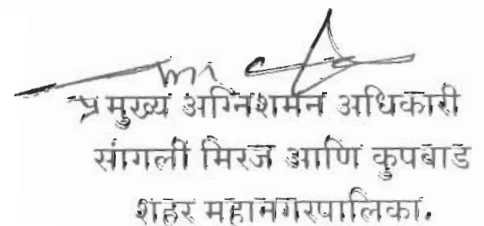 प्रमुख्य अग्निशमन अधिकारी
सांगली मिरज आणि कुपवाड
शहर महानगरपालिका.